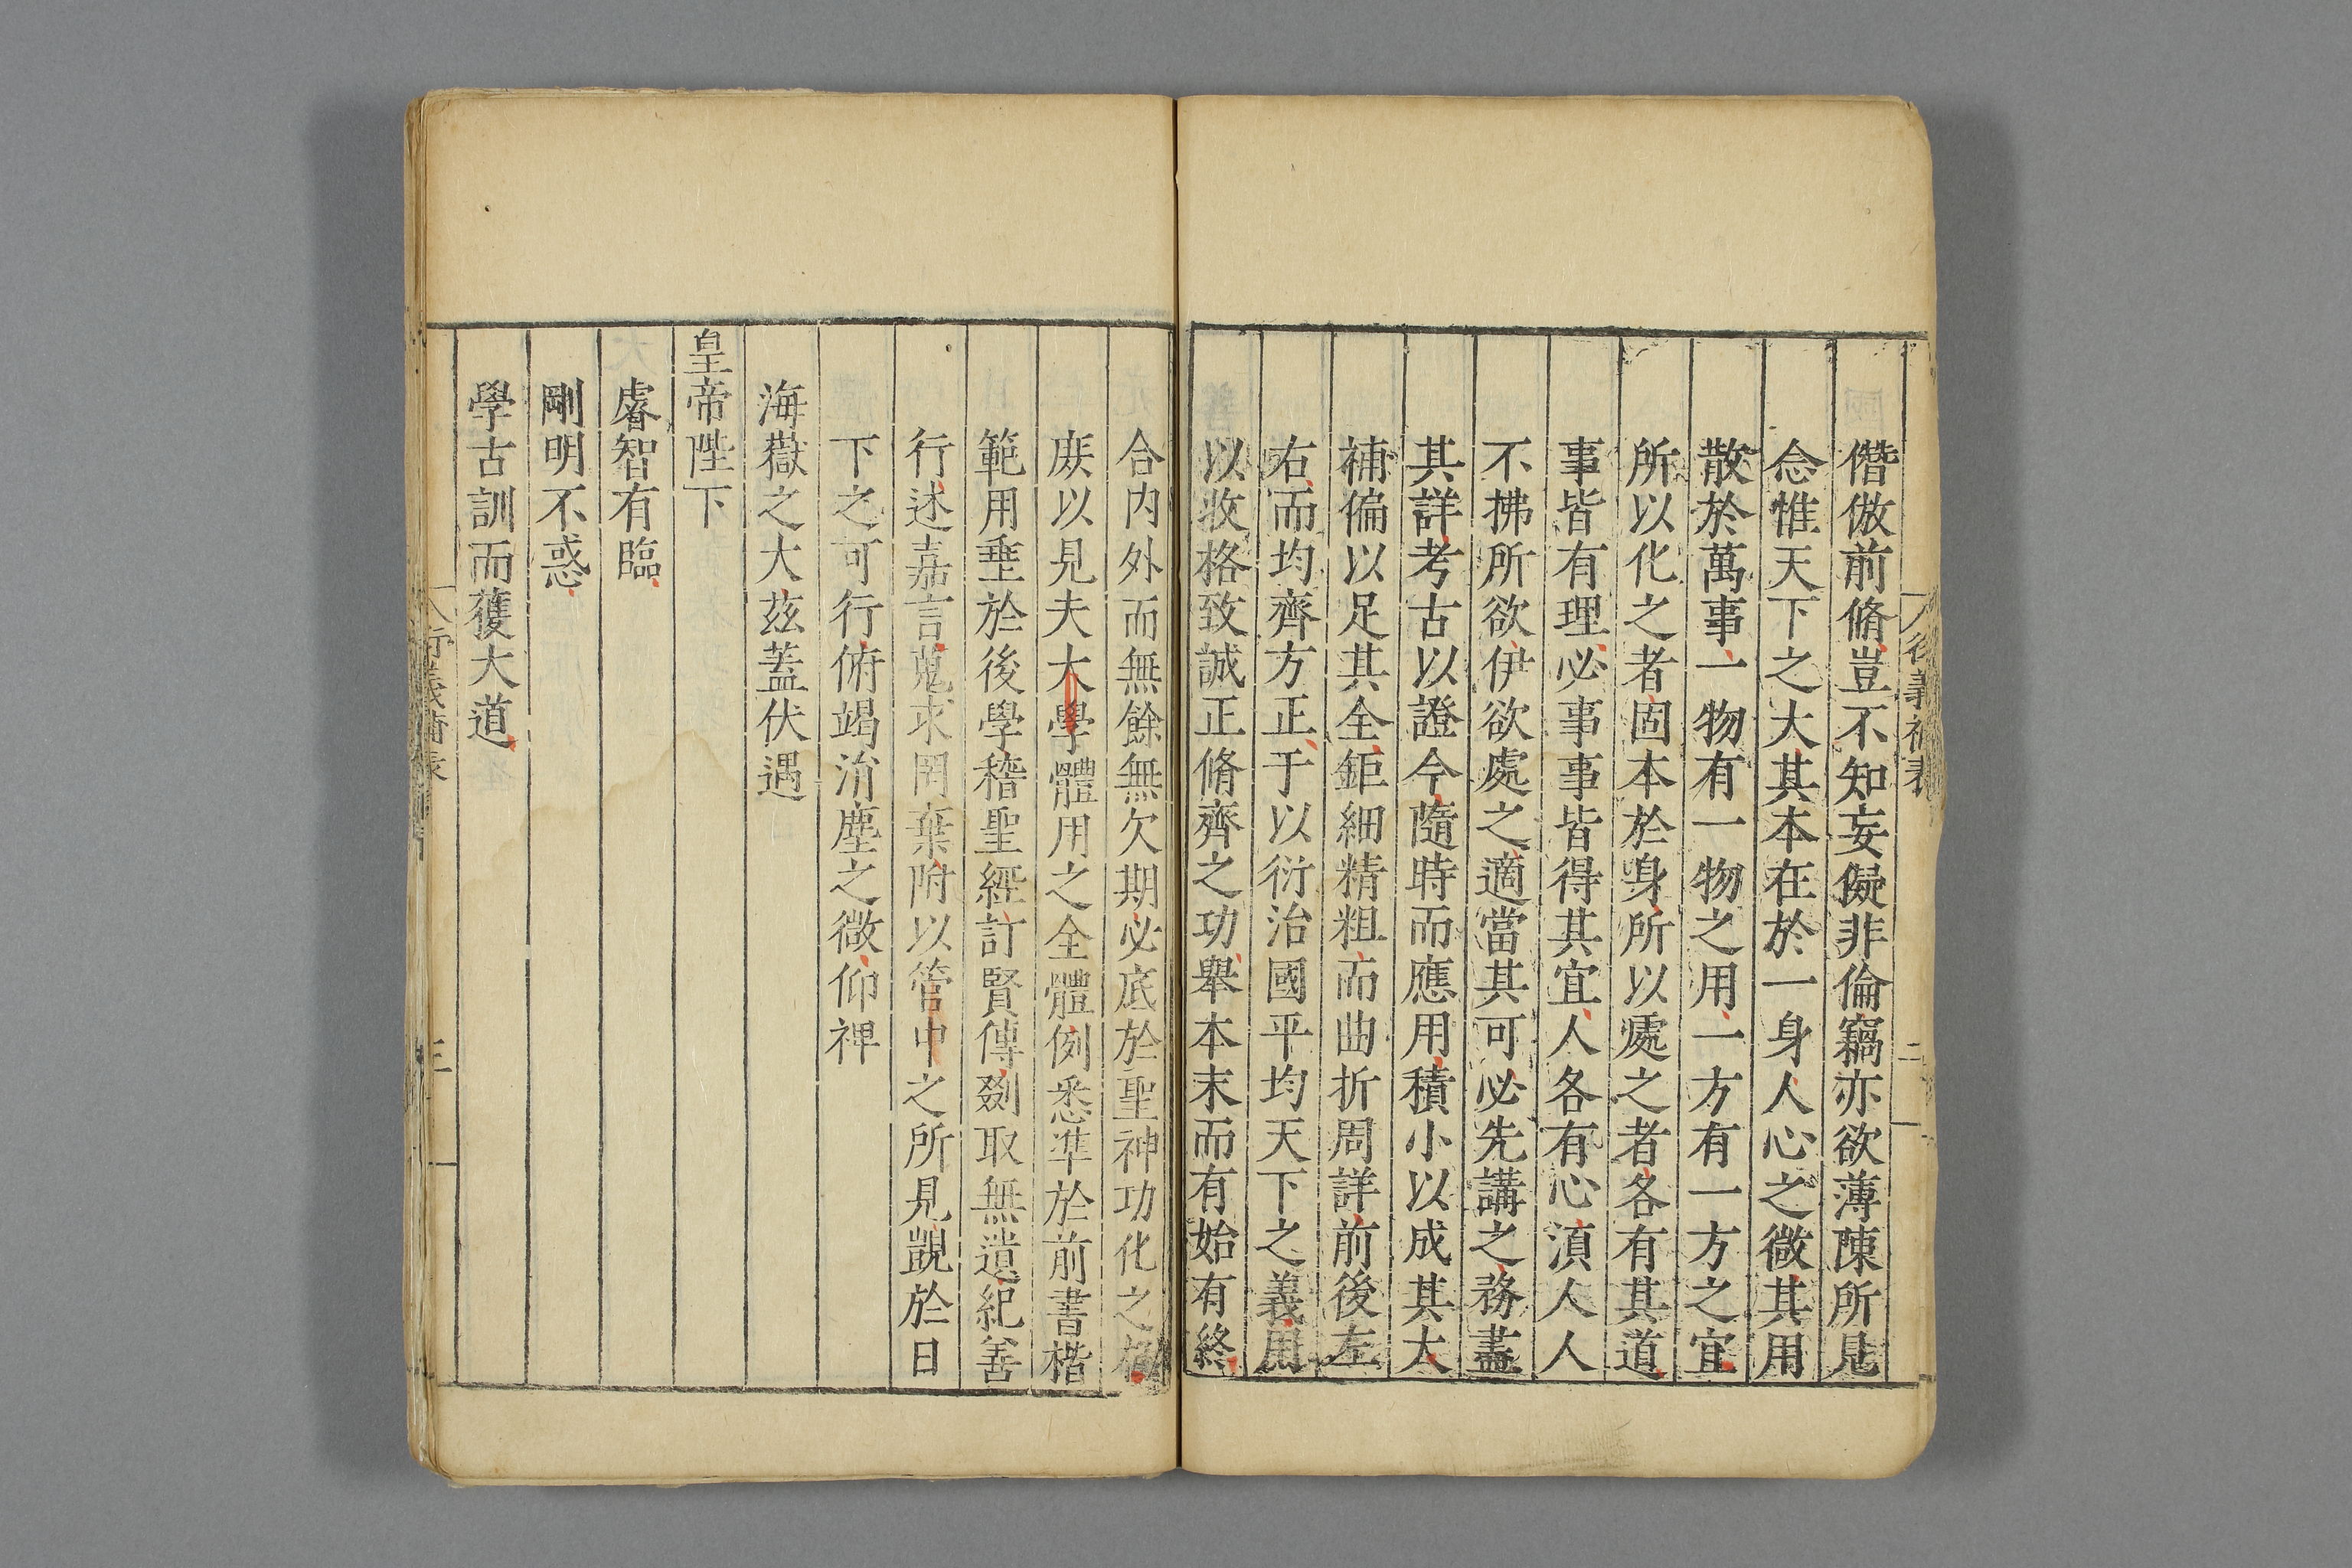 僭倣前脩豈不知妄儗非倫竊亦欲薄陳所見
念惟天下之大其本在於一身人心之微其用
散於萬事一物有一物之用一方有一方之宜
所以化之者固本於身所以處之者各有其道
事皆有理必事事皆得其宜人各有心湏人人
不拂所欲伊欲處之適當其可必先講之務盡
其詳考古以證今隨時而應用積小以成其大
補偏以足其全鉅細精粗而曲折周詳前後左
右而均齊方正于以衍治國平均天下之義用
以收格致誠正脩齊之功舉本末而有始有終
合内外而無餘無欠期必底於聖神功化之極
庻以見夫大學體用之全體例悉準於前書楷
範用垂於後學稽聖經訂賢傳劄取無遺紀善
行述嘉言蒐求罔棄附以管中之所見覬於日
下之可行俯竭涓塵之微仰裨
海嶽之大茲蓋伏遇
皇帝陛下
睿智有臨
剛明不惑
學古訓而獲大道